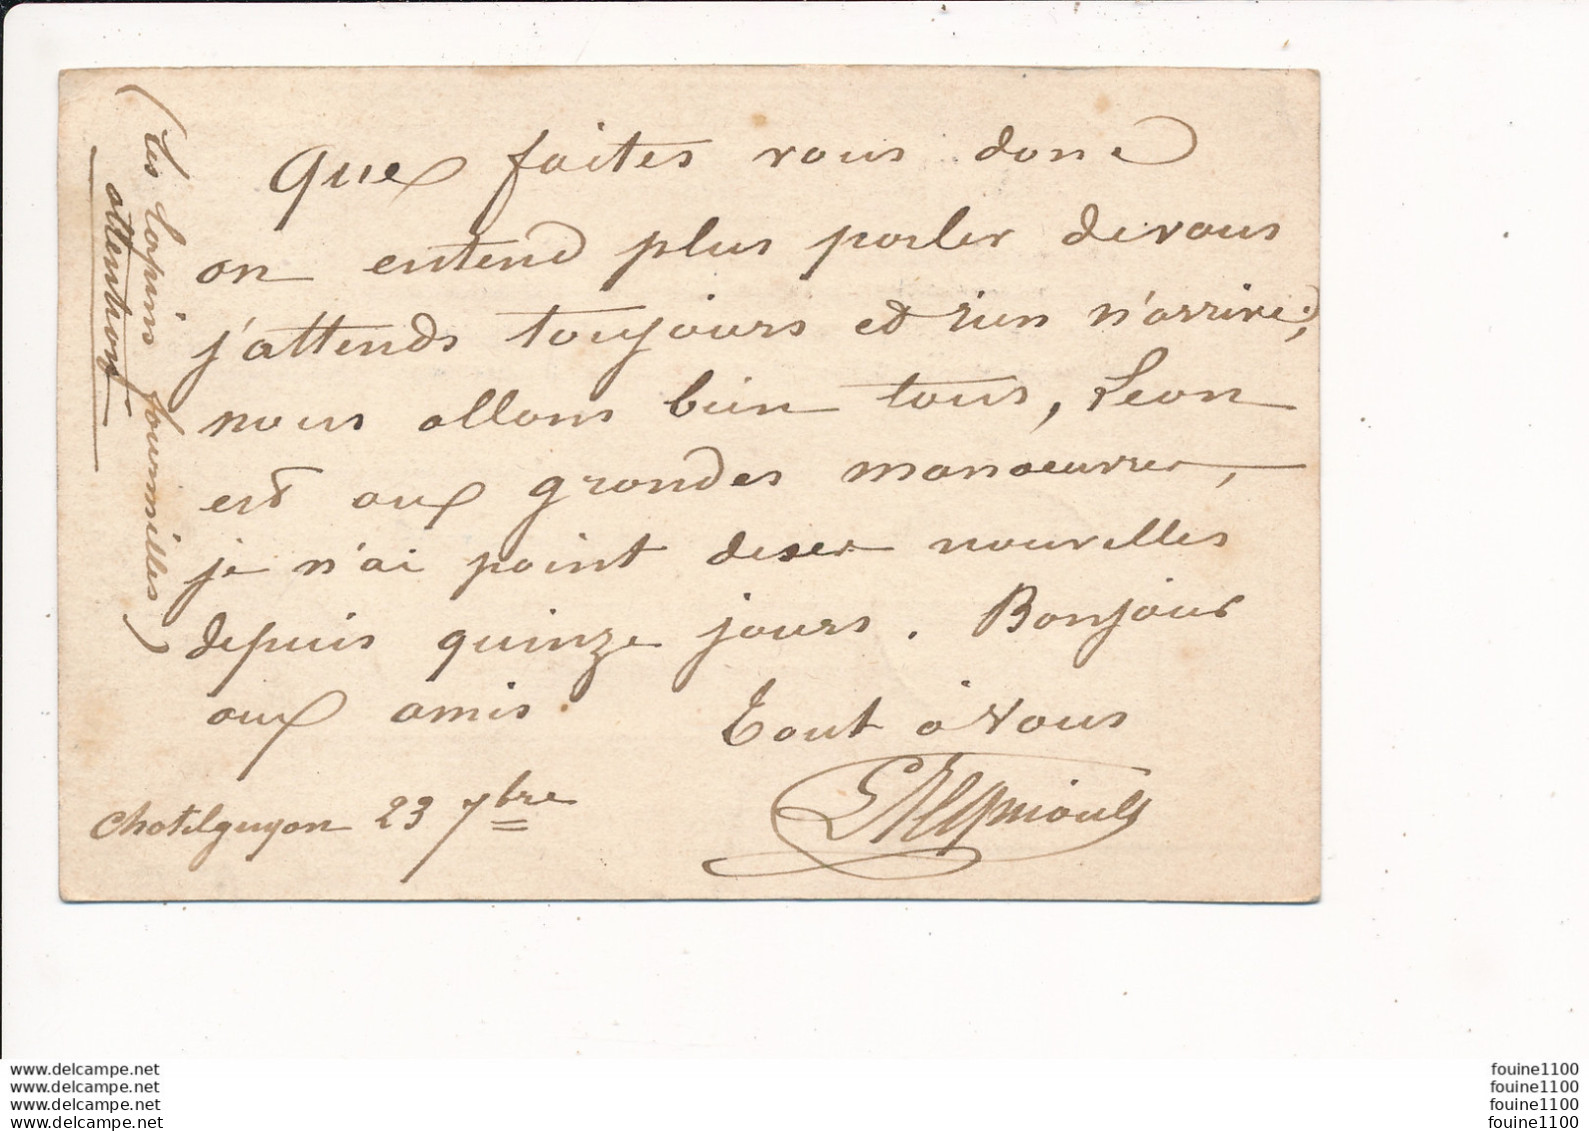 Que faites vous donc
on entend plus parler de vous
j'attends toujours et rien n'arrive,
nous allons bien tous, Leon
est aux grandes manoeuvres,
je n'ai point de ses nouvelles
depuis quinze jours. Bonjour
aux amis. Tout à Vous
Chatelguyon 23 7bre
(les lapins fourmilles)
attention
www.delcampe.net
www.delcampe.net
www.delcampe.net
www.delcampe.net
fouine1100
fouine1100
fouine1100
fouine1100